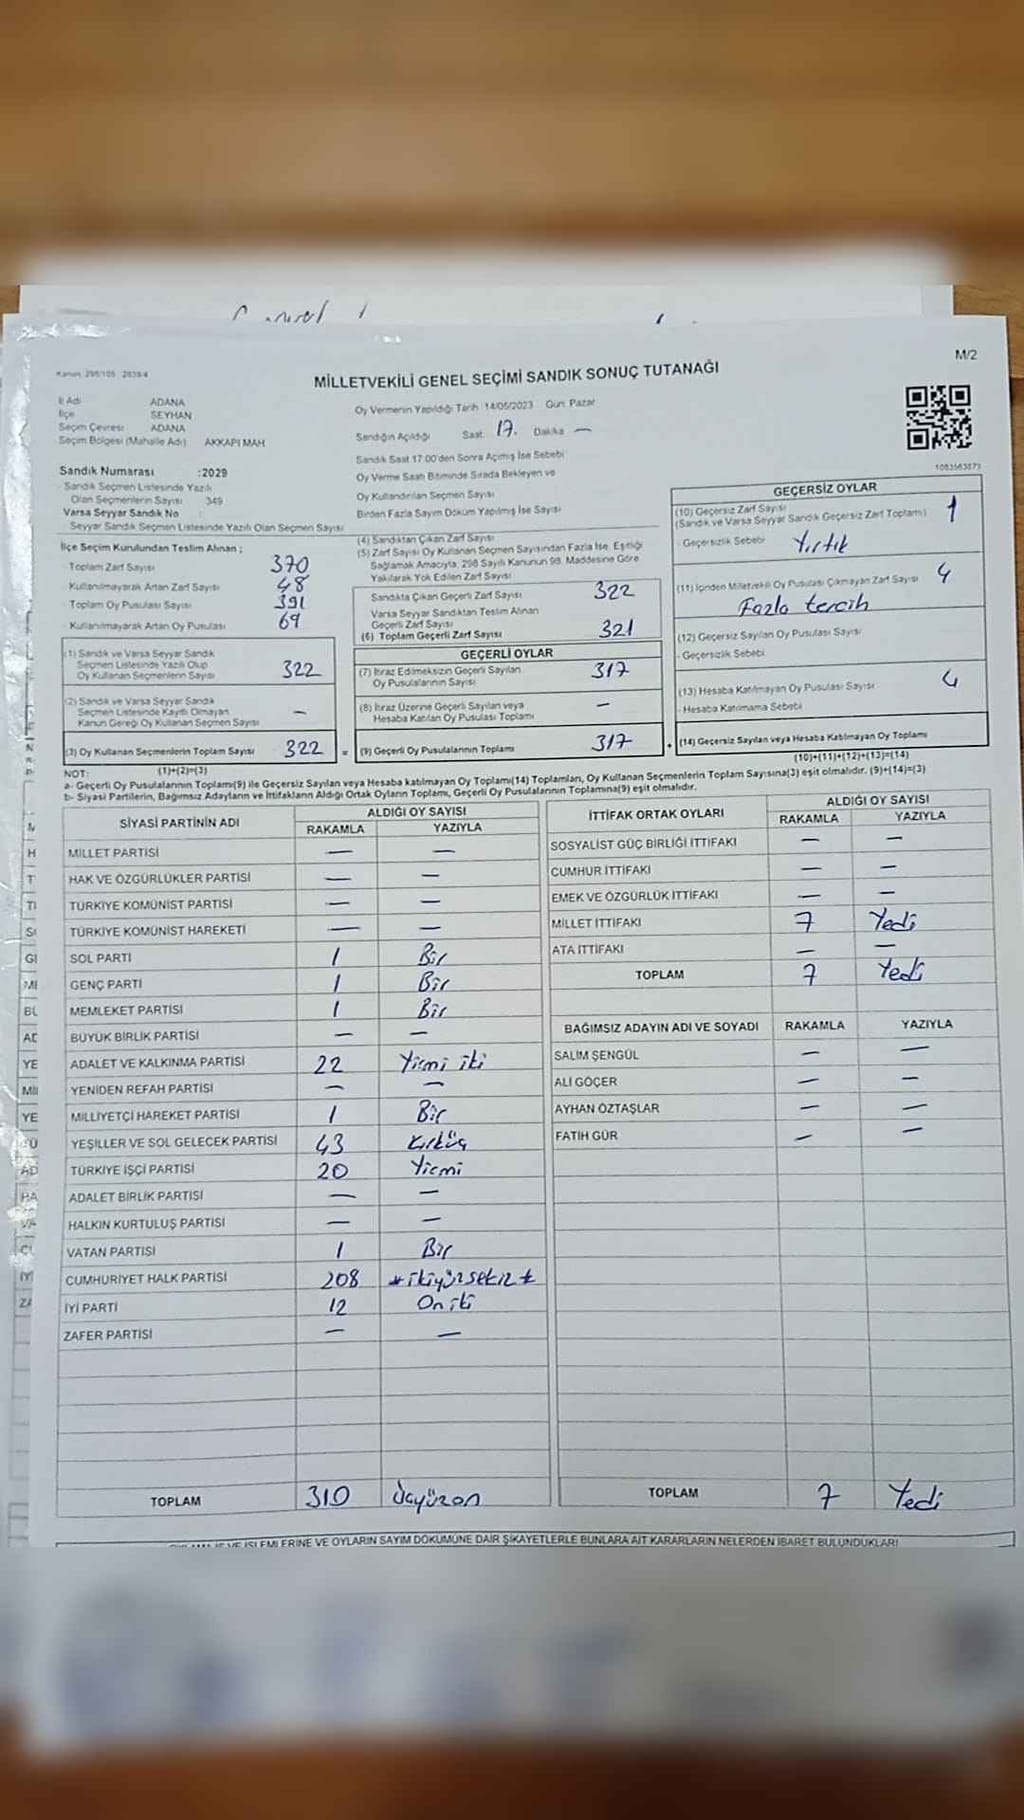 M/2
Kanun: 298/105 2839/4
MİLLETVEKİLİ GENEL SEÇİMİ SANDIK SONUÇ TUTANAĞI
İl Adı ADANA
İlçe SEYHAN
Seçim Çevresi ADANA
Seçim Bölgesi (Mahalle Adı) AKKAPI MAH
Oy Vermenin Yapıldığı Tarih 14/05/2023 Gün: Pazar
Sandığın Açıldığı Saat: 17. Dakika —
Sandık Saat 17:00'den Sonra Açılmış İse Sebebi
Oy Verme Saati Bitiminde Sırada Bekleyen ve
Oy Kullandırılan Seçmen Sayısı
Birden Fazla Sayım Döküm Yapılmış İse Sayısı
1083563873
Sandık Numarası :2029
- Sandık Seçmen Listesinde Yazılı
Olan Seçmenlerin Sayısı 349
Varsa Seyyar Sandık No
Seyyar Sandık Seçmen Listesinde Yazılı Olan Seçmen Sayısı
İlçe Seçim Kurulundan Teslim Alınan ;
- Toplam Zarf Sayısı 370
- Kullanılmayarak Artan Zarf Sayısı 48
- Toplam Oy Pusulası Sayısı 391
- Kullanılmayarak Artan Oy Pusulası 69
(1) Sandık ve Varsa Seyyar Sandık
Seçmen Listesinde Yazılı Olup
Oy Kullanan Seçmenlerin Sayısı 322
(2) Sandık ve Varsa Seyyar Sandık
Seçmen Listesinde Kayıtlı Olmayan
Kanun Gereği Oy Kullanan Seçmen Sayısı —
(3) Oy Kullanan Seçmenlerin Toplam Sayısı 322 =
(1)+(2)=(3)
(4) Sandıktan Çıkan Zarf Sayısı
(5) Zarf Sayısı Oy Kullanan Seçmen Sayısından Fazla İse, Eşitliği
Sağlamak Amacıyla, 298 Sayılı Kanunun 98. Maddesine Göre
Yakılarak Yok Edilen Zarf Sayısı
Sandıkta Çıkan Geçerli Zarf Sayısı 322
Varsa Seyyar Sandıktan Teslim Alınan
Geçerli Zarf Sayısı
(6) Toplam Geçerli Zarf Sayısı 321
GEÇERLİ OYLAR
(7) İtiraz Edilmeksizin Geçerli Sayılan
Oy Pusulalarının Sayısı 317
(8) İtiraz Üzerine Geçerli Sayılan veya
Hesaba Katılan Oy Pusulası Toplamı —
(9) Geçerli Oy Pusulalarının Toplamı 317 +
GEÇERSİZ OYLAR
(10) Geçersiz Zarf Sayısı
(Sandık ve Varsa Seyyar Sandık Geçersiz Zarf Toplamı) 1
- Geçersizlik Sebebi Yırtık
(11) İçinden Milletvekili Oy Pusulası Çıkmayan Zarf Sayısı 4
Fazla tercih
(12) Geçersiz Sayılan Oy Pusulası Sayısı
- Geçersizlik Sebebi
(13) Hesaba Katılmayan Oy Pusulası Sayısı 4
- Hesaba Katılmama Sebebi
(14) Geçersiz Sayılan veya Hesaba Katılmayan Oy Toplamı
(10)+(11)+(12)+(13)=(14)
NOT:
a- Geçerli Oy Pusulalarının Toplamı(9) ile Geçersiz Sayılan veya Hesaba katılmayan Oy Toplamı(14) Toplamları, Oy Kullanan Seçmenlerin Toplam Sayısına(3) eşit olmalıdır. (9)+(14)=(3)
b- Siyasi Partilerin, Bağımsız Adayların ve İttifakların Aldığı Ortak Oyların Toplamı, Geçerli Oy Pusulalarının Toplamına(9) eşit olmalıdır.
SİYASİ PARTİNİN ADI ALDIĞI OY SAYISI
RAKAMLA YAZIYLA
MİLLET PARTİSİ — —
HAK VE ÖZGÜRLÜKLER PARTİSİ — —
TÜRKİYE KOMÜNİST PARTİSİ — —
TÜRKİYE KOMÜNİST HAREKETİ — —
SOL PARTİ 1 Bir
GENÇ PARTİ 1 Bir
MEMLEKET PARTİSİ 1 Bir
BÜYÜK BİRLİK PARTİSİ — —
ADALET VE KALKINMA PARTİSİ 22 Yirmi iki
YENİDEN REFAH PARTİSİ — —
MİLLİYETÇİ HAREKET PARTİSİ 1 Bir
YEŞİLLER VE SOL GELECEK PARTİSİ 43 Kırküç
TÜRKİYE İŞÇİ PARTİSİ 20 Yirmi
ADALET BİRLİK PARTİSİ — —
HALKIN KURTULUŞ PARTİSİ — —
VATAN PARTİSİ 1 Bir
CUMHURİYET HALK PARTİSİ 208 *ikiyüzsekiz*
İYİ PARTİ 12 On iki
ZAFER PARTİSİ — —
TOPLAM 310 Üçyüzon
İTTİFAK ORTAK OYLARI ALDIĞI OY SAYISI
RAKAMLA YAZIYLA
SOSYALİST GÜÇ BİRLİĞİ İTTİFAKI — —
CUMHUR İTTİFAKI — —
EMEK VE ÖZGÜRLÜK İTTİFAKI — —
MİLLET İTTİFAKI 7 Yedi
ATA İTTİFAKI — —
TOPLAM 7 Yedi
BAĞIMSIZ ADAYIN ADI VE SOYADI RAKAMLA YAZIYLA
SALİM ŞENGÜL — —
ALİ GÖÇER — —
AYHAN ÖZTAŞLAR — —
FATİH GÜR — —
TOPLAM 7 Yedi
VE OYLARIN SAYIM DÖKÜMÜNE DAİR ŞİKAYETLERLE BUNLARA AİT KARARLARIN NELERDEN İBARET BULUNDUKLARI